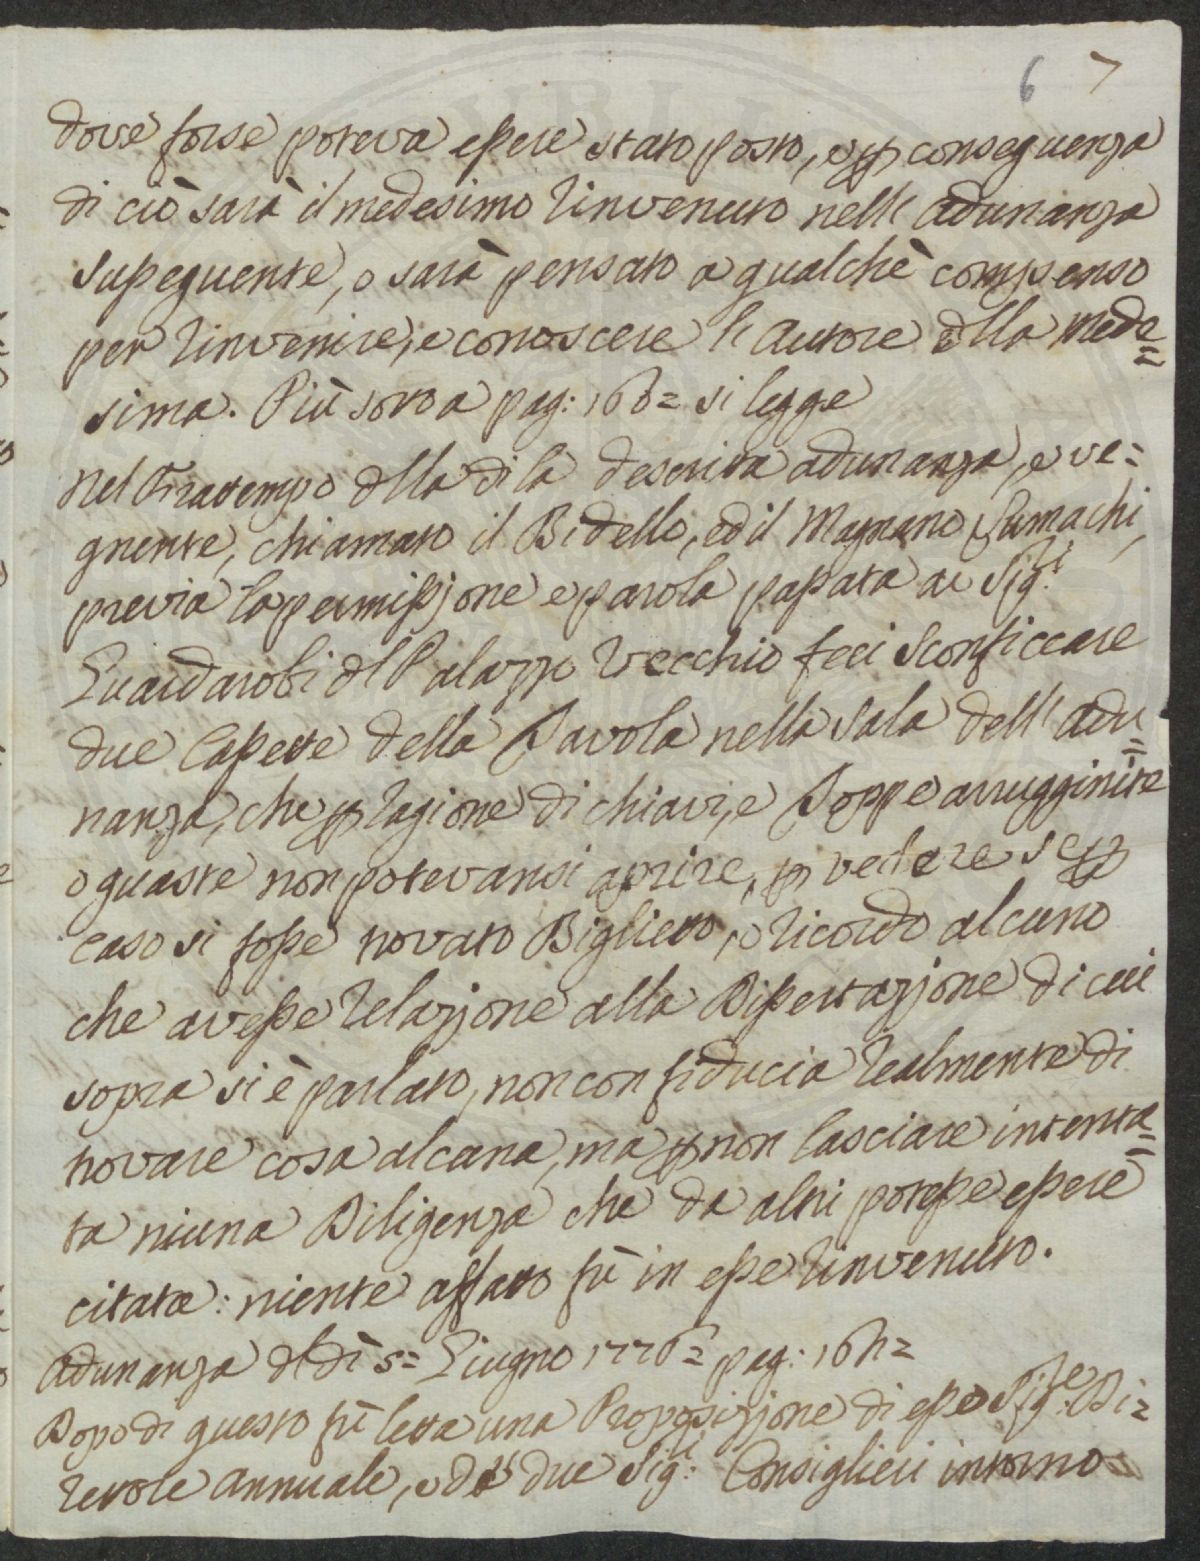 6 7
dove forse poteva essere stato posto, e p conseguenza
di ciò sarà il medesimo rinvenuto nell'adunanza
susseguente, o sarà pensato a qualchè compenso
per rinvenire, e conoscere l'Autore dlla mede=
sima. Più sotto a pag: 163= si legge
Nel Frattempo dlla di là descritta adunanza, e ve=
gnente, chiamato il Bidello, ed il Magnano Fumachi,
previa la permissjone e parola passata ai Sig.ri
Guardarobi dl Palazzo Vecchio feci sconficcare
due Cassette della Tavola nella Sala dell'Adu=
nanza, che p ragione di chiavi, e Toppe arrugginite
o guaste non potevansi aprire, p vedere se p
caso si fosse trovato Biglietto, o ricordo alcuno
che avesse relazjone alla Dissertazjone di cui
sopra si è parlato, non con fiducia realmente di
trovare cosa alcuna, ma p non lasciare intenta=
ta niuna Diligenza che da altri potesse essere
citata: niente affatto fù in esse rinvenuto.
Adunanza dl dì 5= Giugno 1776= pag: 164=
Dopo di questo fù letta una Proposizjone di esso Sig.re Di=
rettole Annuale, e de due Sig.ri Consiglieri intorno